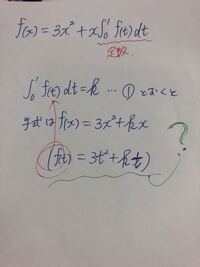 f(x) = 3x² + x∫₀¹ f(t)dt
定数
∫₀¹ f(t)dt = k … ① とおくと
与式は f(x) = 3x² + kx
(f(t) = 3t² + kt)
?